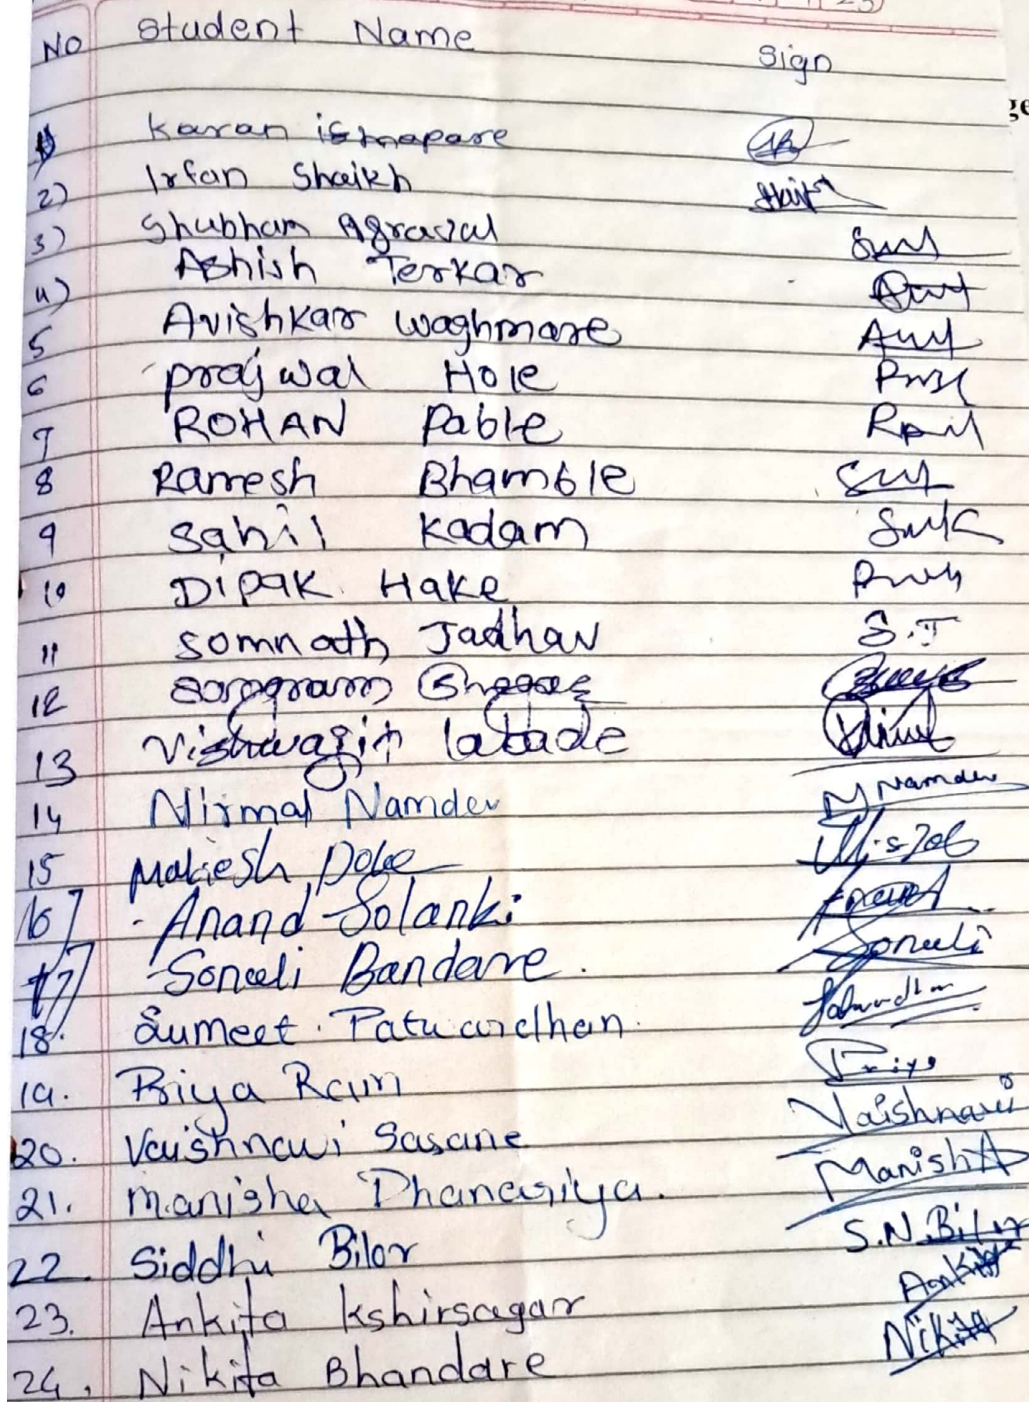 23)
No Student Name Sign
ge
1) Karan
2) Irfan Shaikh Shaikh
3) Shubham Agrawal
4) Ashish Terkar
5 Avishkar Waghmare
6 Prajwal Hole
7 ROHAN Pable
8 Ramesh Bhamble
9 Sahil Kadam
10 Dipak Hake
11 Somnath Jadhav S.J
12 Sangram
13 Vishwajit labade
14 Nirmal Namdev N Namdev
15 Dobe
16] Anand Solanki Anand
17] Sonali Bandare. Sonali
18. Sumeet. Patwardhan. Patwardhan
19. Priya Ram Priya
20. Vaishnavi Sasane Vaishnavi
21. Manisha Dhanasriya. ManishA
22. Siddhi Bilor S.N.Bilor
23. Ankita Kshirsagar Ankita
24. Nikita Bhandare Nikita